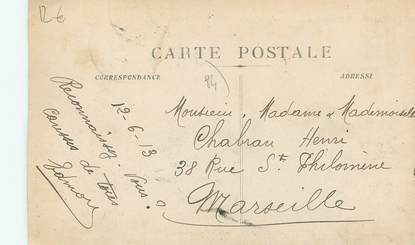 R €
CARTE POSTALE
CORRESPONDANCE
ADRESSE
84
12-6-13
Reconnaissez-Vous ?
Caresses de tous
Edmond
Monsieur, Madame & Mademoiselle
Chabran Henri
38 Rue Ste Philomène
Marseille